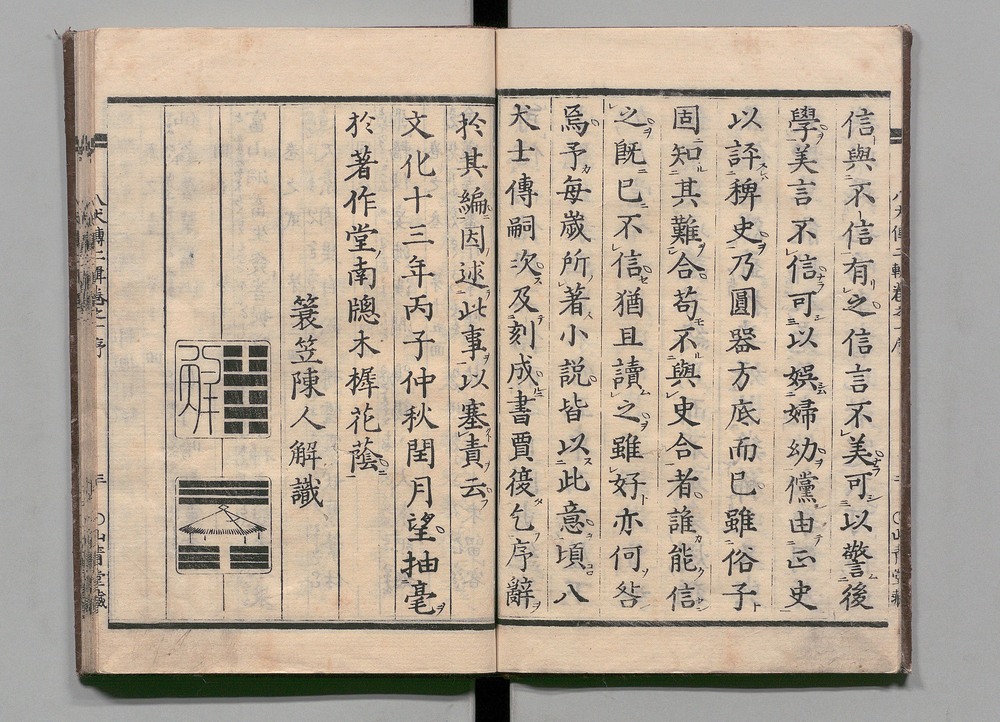 信與不信有之信言不美可以警後
學美言不信可以娯婦幼儻由正史
以評稗史乃圓器方底而已雖俗子
固知其難合苟不與史合者誰能信
之既已不信猶且讀之雖好亦何咎
焉予毎歳所著小説皆以此意頃八
犬士傳嗣次及刻成書賈復乞序辭
於其編因述此事以塞責云
文化十三年丙子仲秋閏月望抽毫
於著作堂南牕木樨花蔭
簑笠陳人解識
解
八犬傳二輯卷之一序
山青堂藏